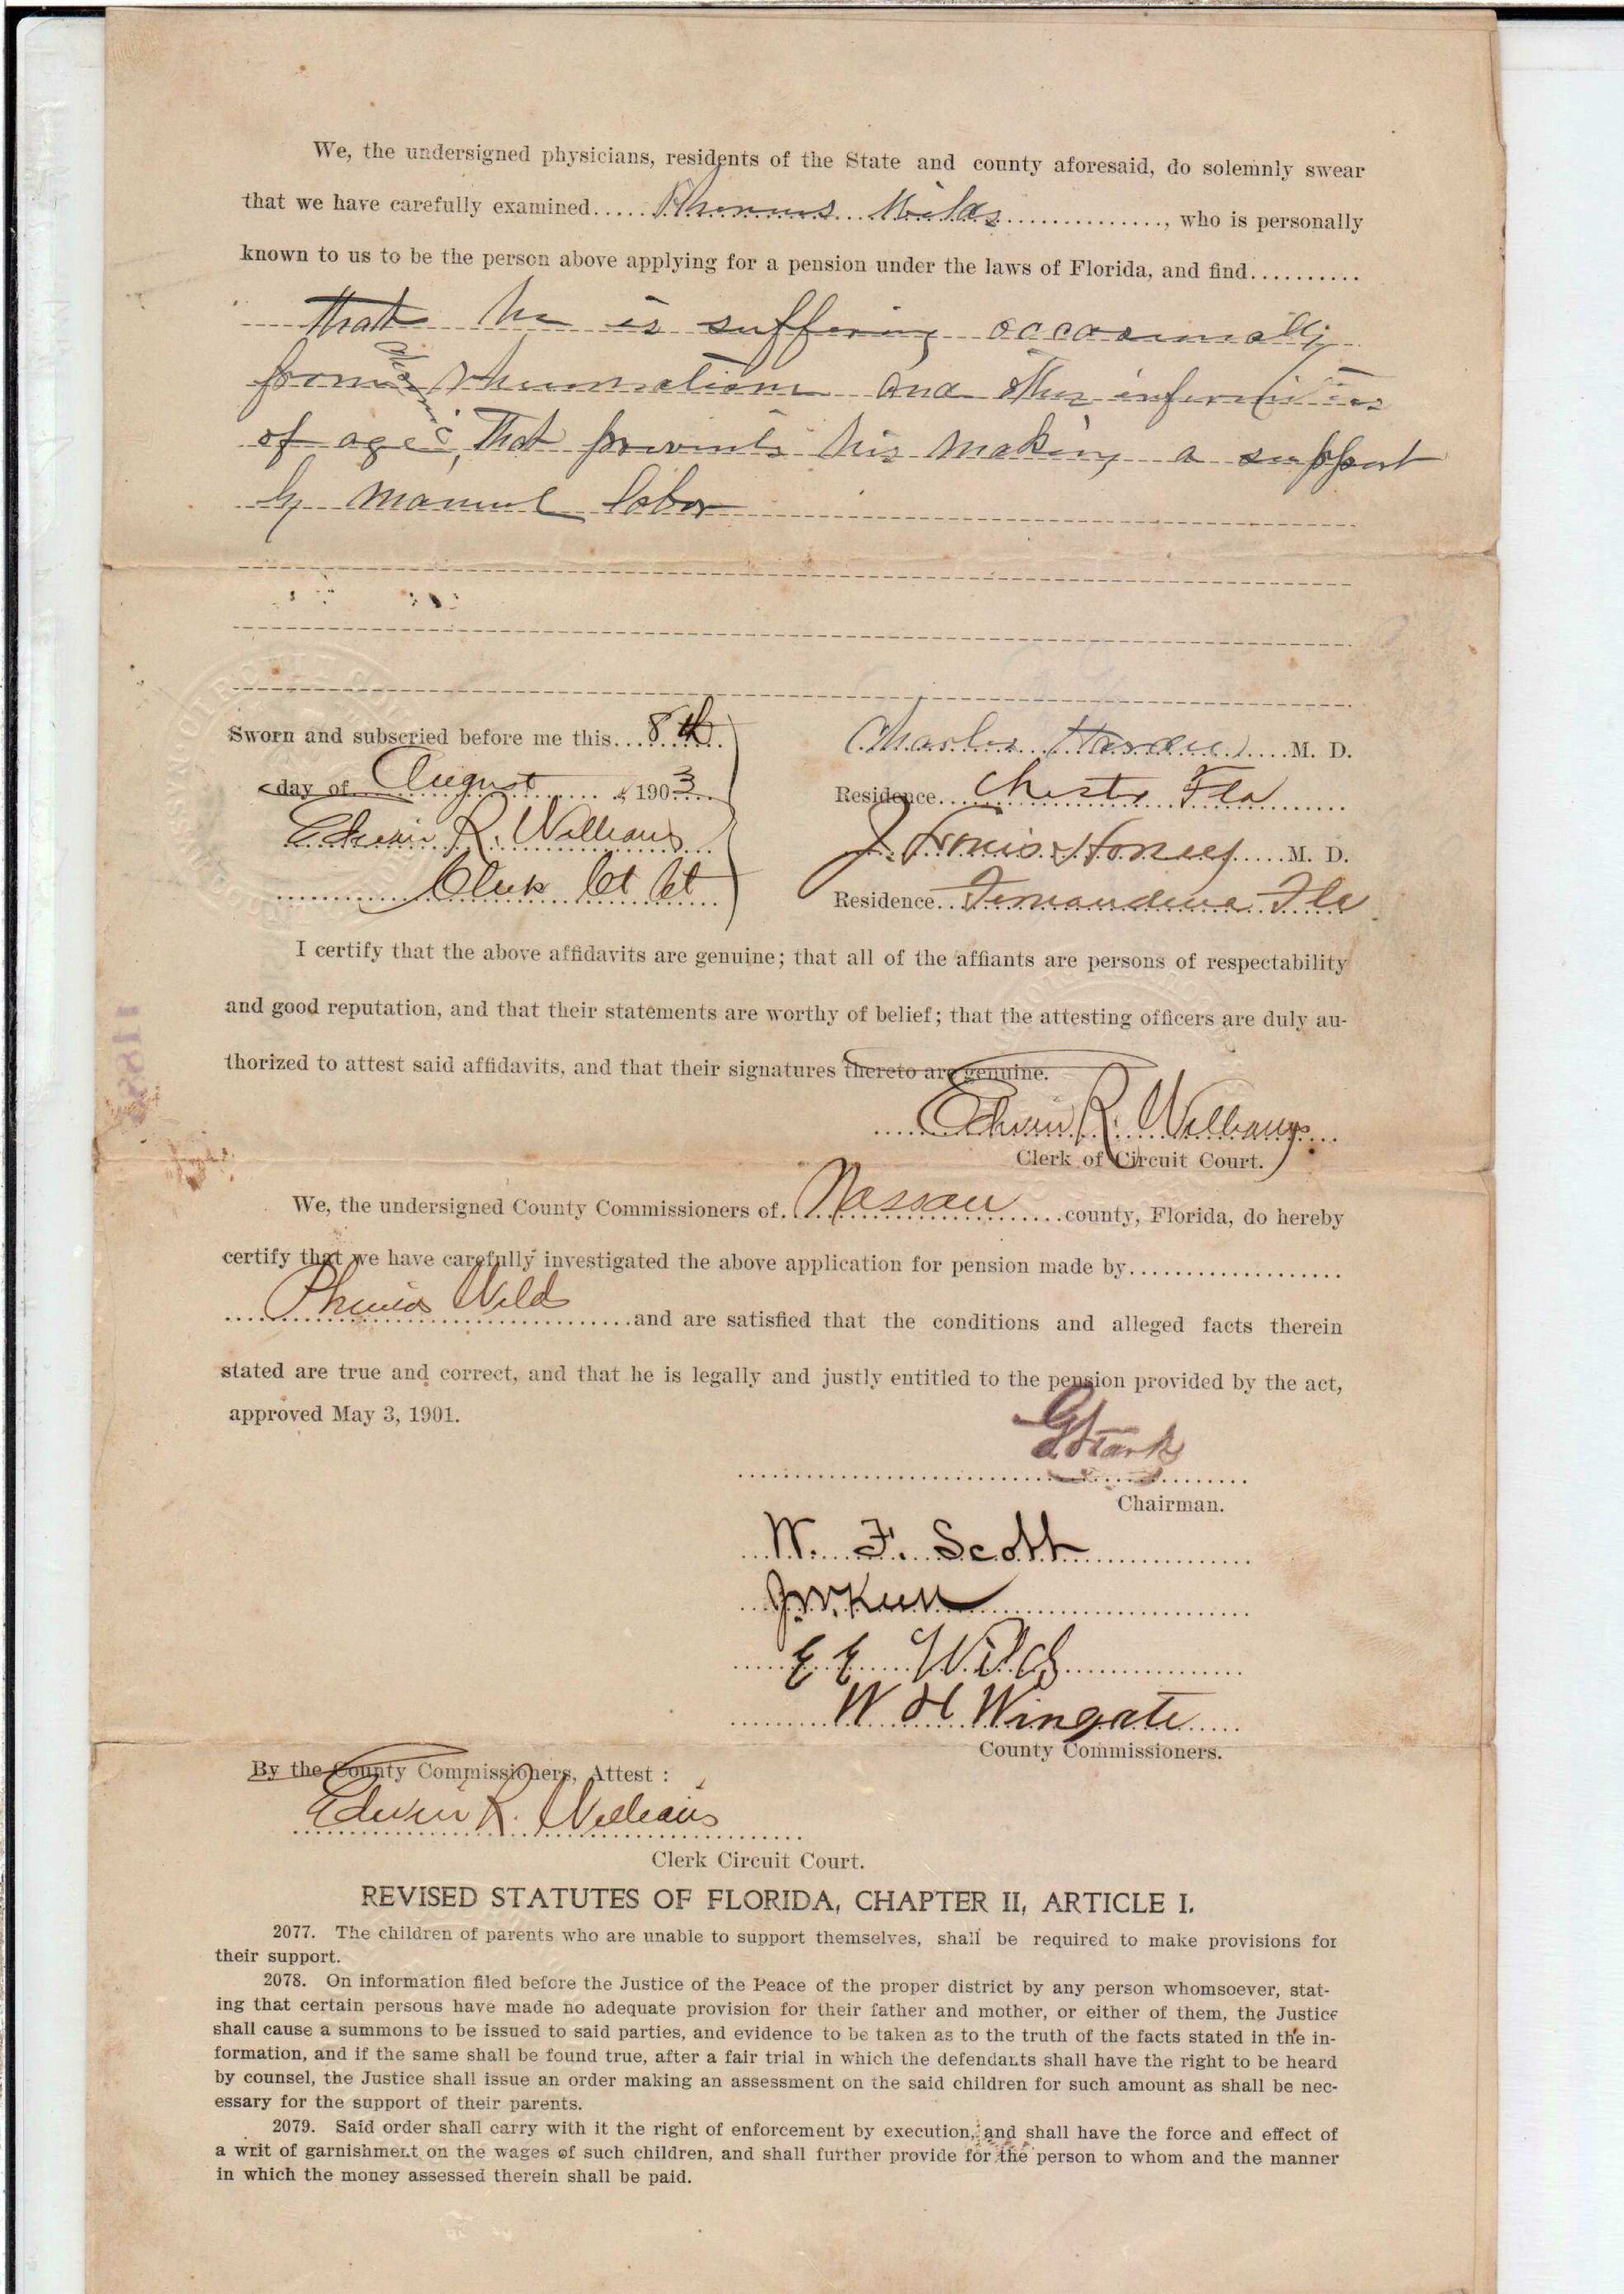 We, the undersigned physicians, residents of the State and county aforesaid, do solemnly swear
that we have carefully examined..... ..............., who is personally
known to us to be the person above applying for a pension under the laws of Florida, and find..........
that he is suffering occasionally
from rheumatism and other infirmities
of age, that prevents his making a support
by manual labor
Sworn and subscried before me this... 8th
day of August, 1903
Edwin R. Williams
Clerk Ct Ct
Charles M. D.
Residence... Chester Fla
J. Horsey M. D.
Residence.. Fernandina Fla
I certify that the above affidavits are genuine; that all of the affiants are persons of respectability
and good reputation, and that their statements are worthy of belief; that the attesting officers are duly au-
thorized to attest said affidavits, and that their signatures thereto are genuine.
Edwin R. Williams
Clerk of Circuit Court.
We, the undersigned County Commissioners of. Nassau county, Florida, do hereby
certify that we have carefully investigated the above application for pension made by...................
Wilds and are satisfied that the conditions and alleged facts therein
stated are true and correct, and that he is legally and justly entitled to the pension provided by the act,
approved May 3, 1901.
G Stark
Chairman.
W. F. Scott
J. W. Keen
E E Wilds
W H Wingate
County Commissioners.
By the County Commissioners, Attest :
Edwin R. Williams
Clerk Circuit Court.
REVISED STATUTES OF FLORIDA, CHAPTER II, ARTICLE I.
2077. The children of parents who are unable to support themselves, shall be required to make provisions for
their support.
2078. On information filed before the Justice of the Peace of the proper district by any person whomsoever, stat-
ing that certain persons have made no adequate provision for their father and mother, or either of them, the Justice
shall cause a summons to be issued to said parties, and evidence to be taken as to the truth of the facts stated in the in-
formation, and if the same shall be found true, after a fair trial in which the defendants shall have the right to be heard
by counsel, the Justice shall issue an order making an assessment on the said children for such amount as shall be nec-
essary for the support of their parents.
2079. Said order shall carry with it the right of enforcement by execution, and shall have the force and effect of
a writ of garnishment on the wages of such children, and shall further provide for the person to whom and the manner
in which the money assessed therein shall be paid.